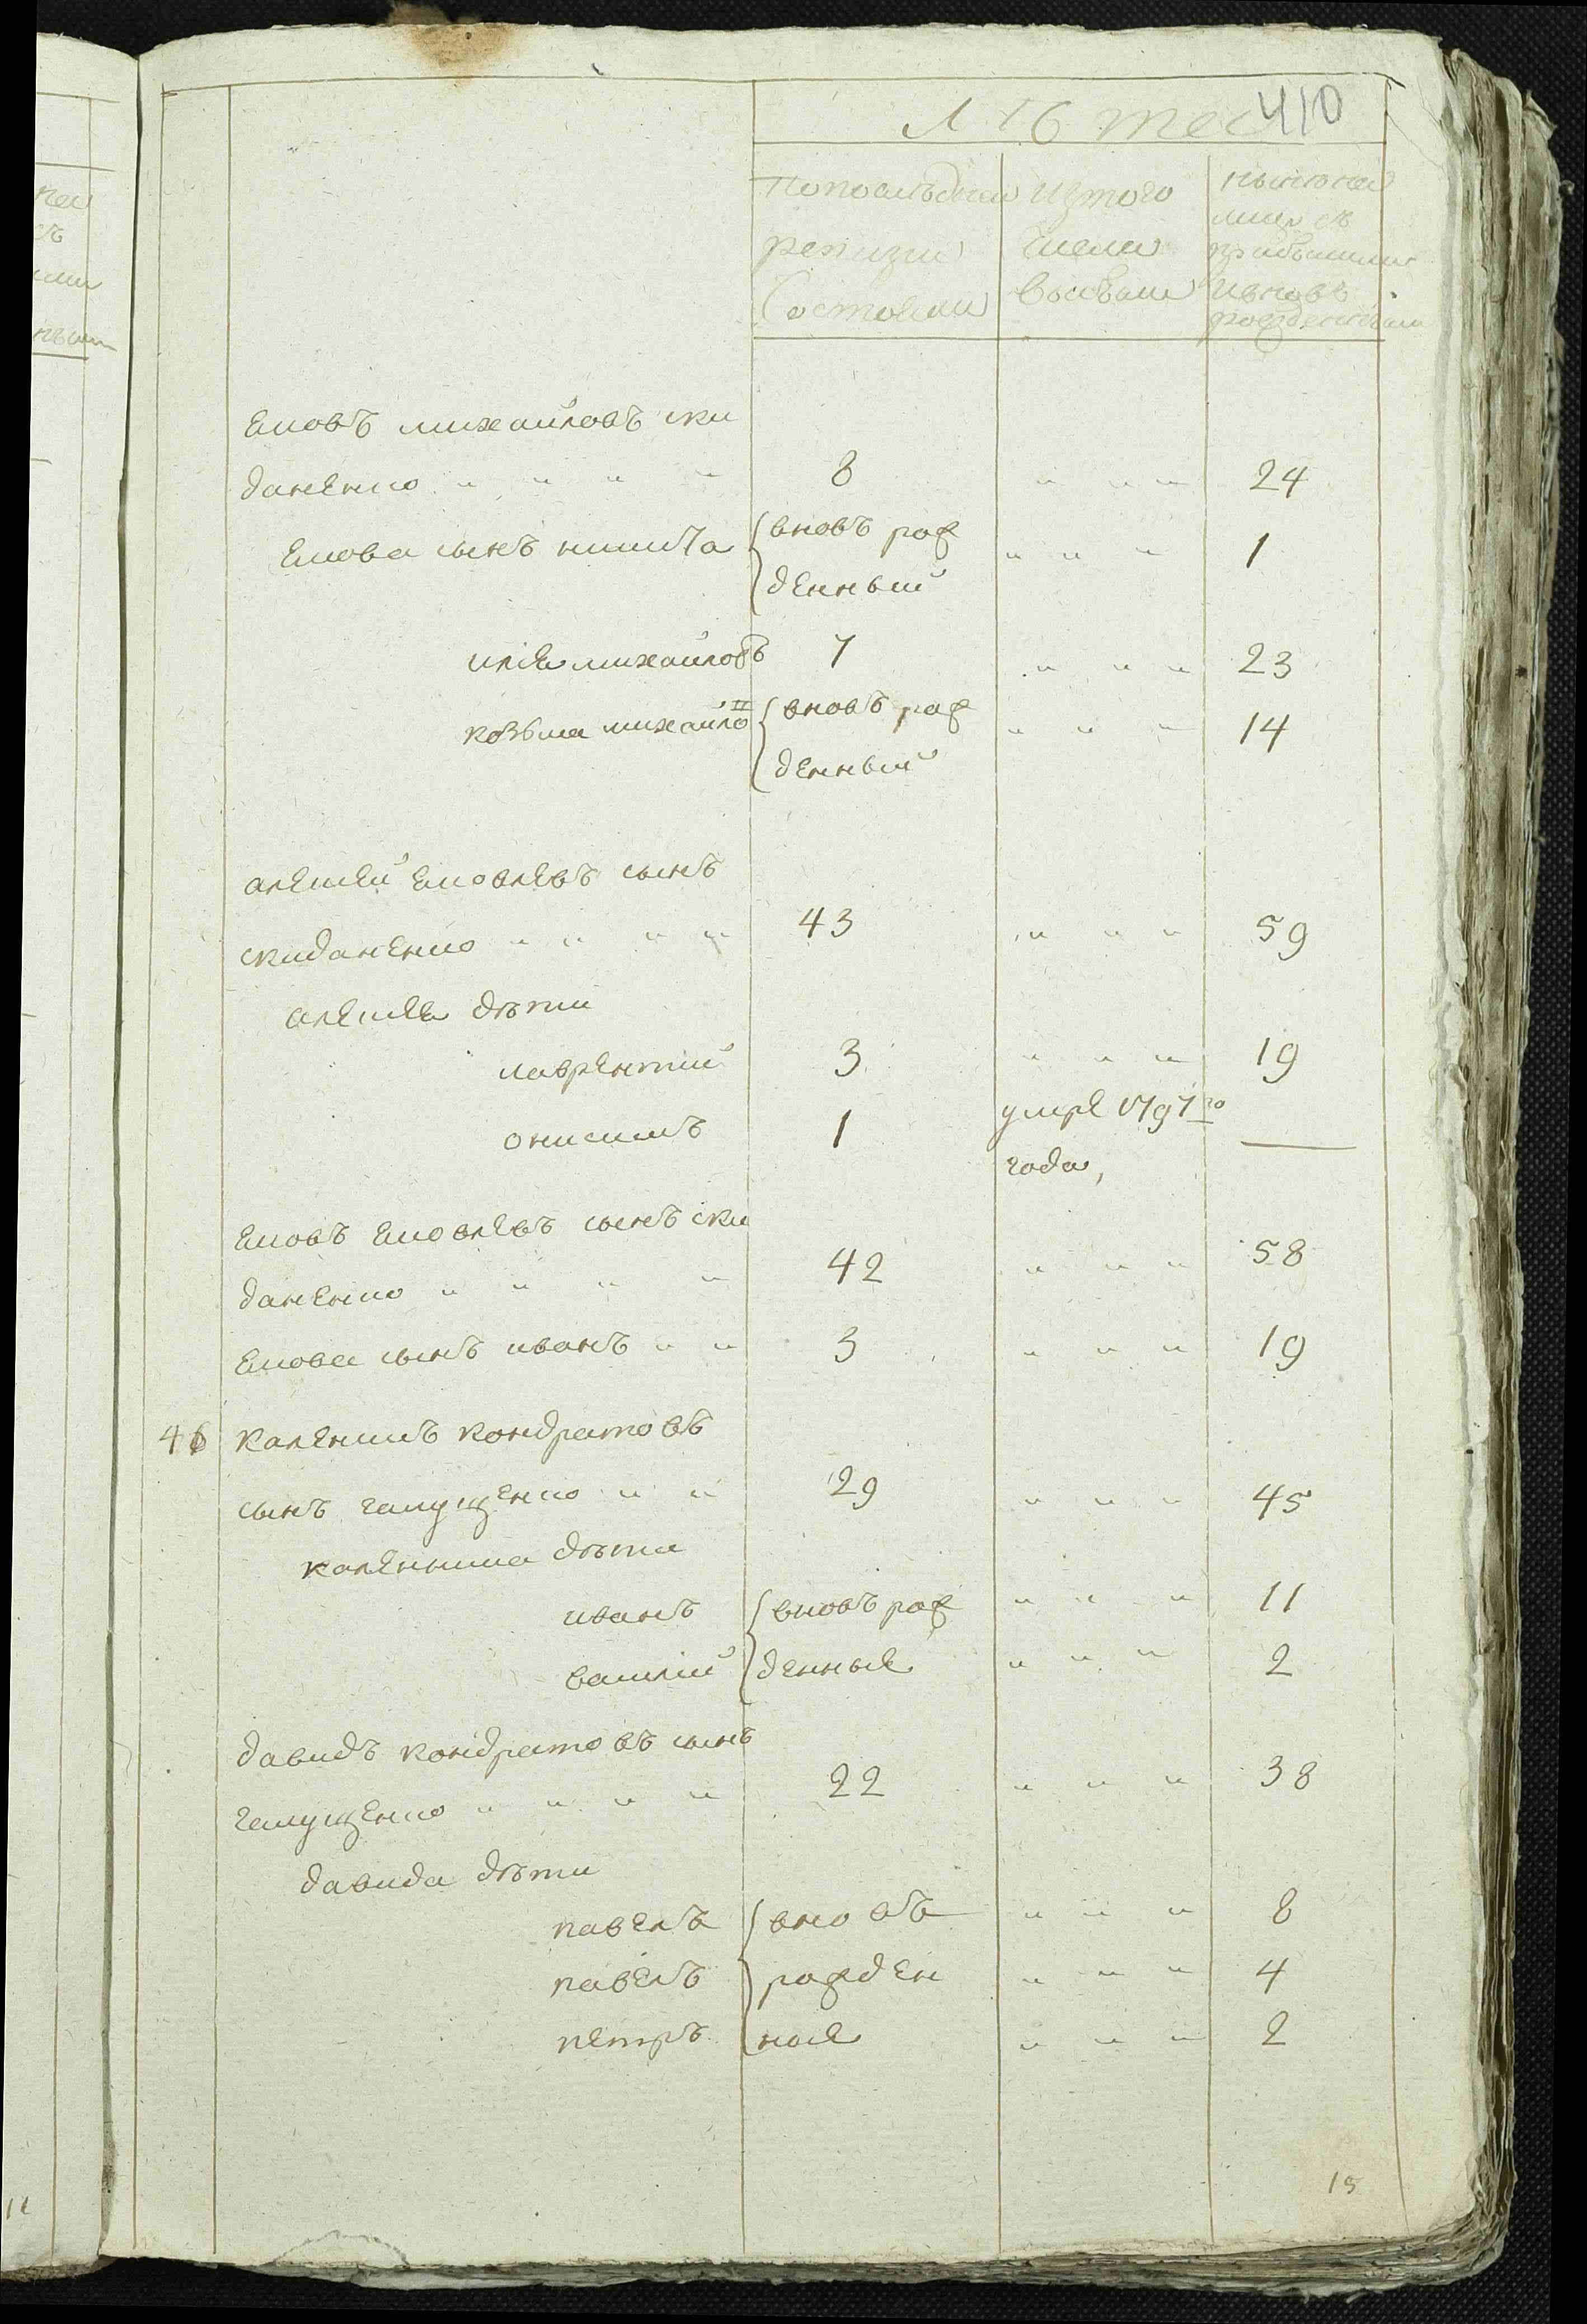 410
лѣтъ
По последней
ревизии
Состояли
изтого
числа
выбыли
ныне на
лицо съ
прибылыми
ивновь
рожденными
Ековъ михайловъ ски
даненко " " " " 8 " " " 24
Екова сынъ никита вновь рож
денный " " " 1
илья михайловъ 7 " " " 23
козьма михайло вновь рож
денный " " " 14
алексей Ековлевъ сынъ
скиданенко " " " " 43 " " " 59
алексея дѣти
лаврентий 3 " " " 19
онисимъ 1 умре 1797го
года,
Ековъ Ековлевъ сынъ ски
даненко " " " " 42 " " " 58
Екова сынъ иванъ " " 3 " " " 19
46 каленикъ кондратовъ
сынъ галущенко " " 29 " " " 45
каленика дѣти
иванъ вновь рож " " " 11
василий денные " " " 2
давидъ кондратовъ сынъ
галущенко " " " " 22 " " " 38
давида дѣти
павелъ вновь " " " 8
павелъ рожден " " " 4
петръ ные " " " 2
15